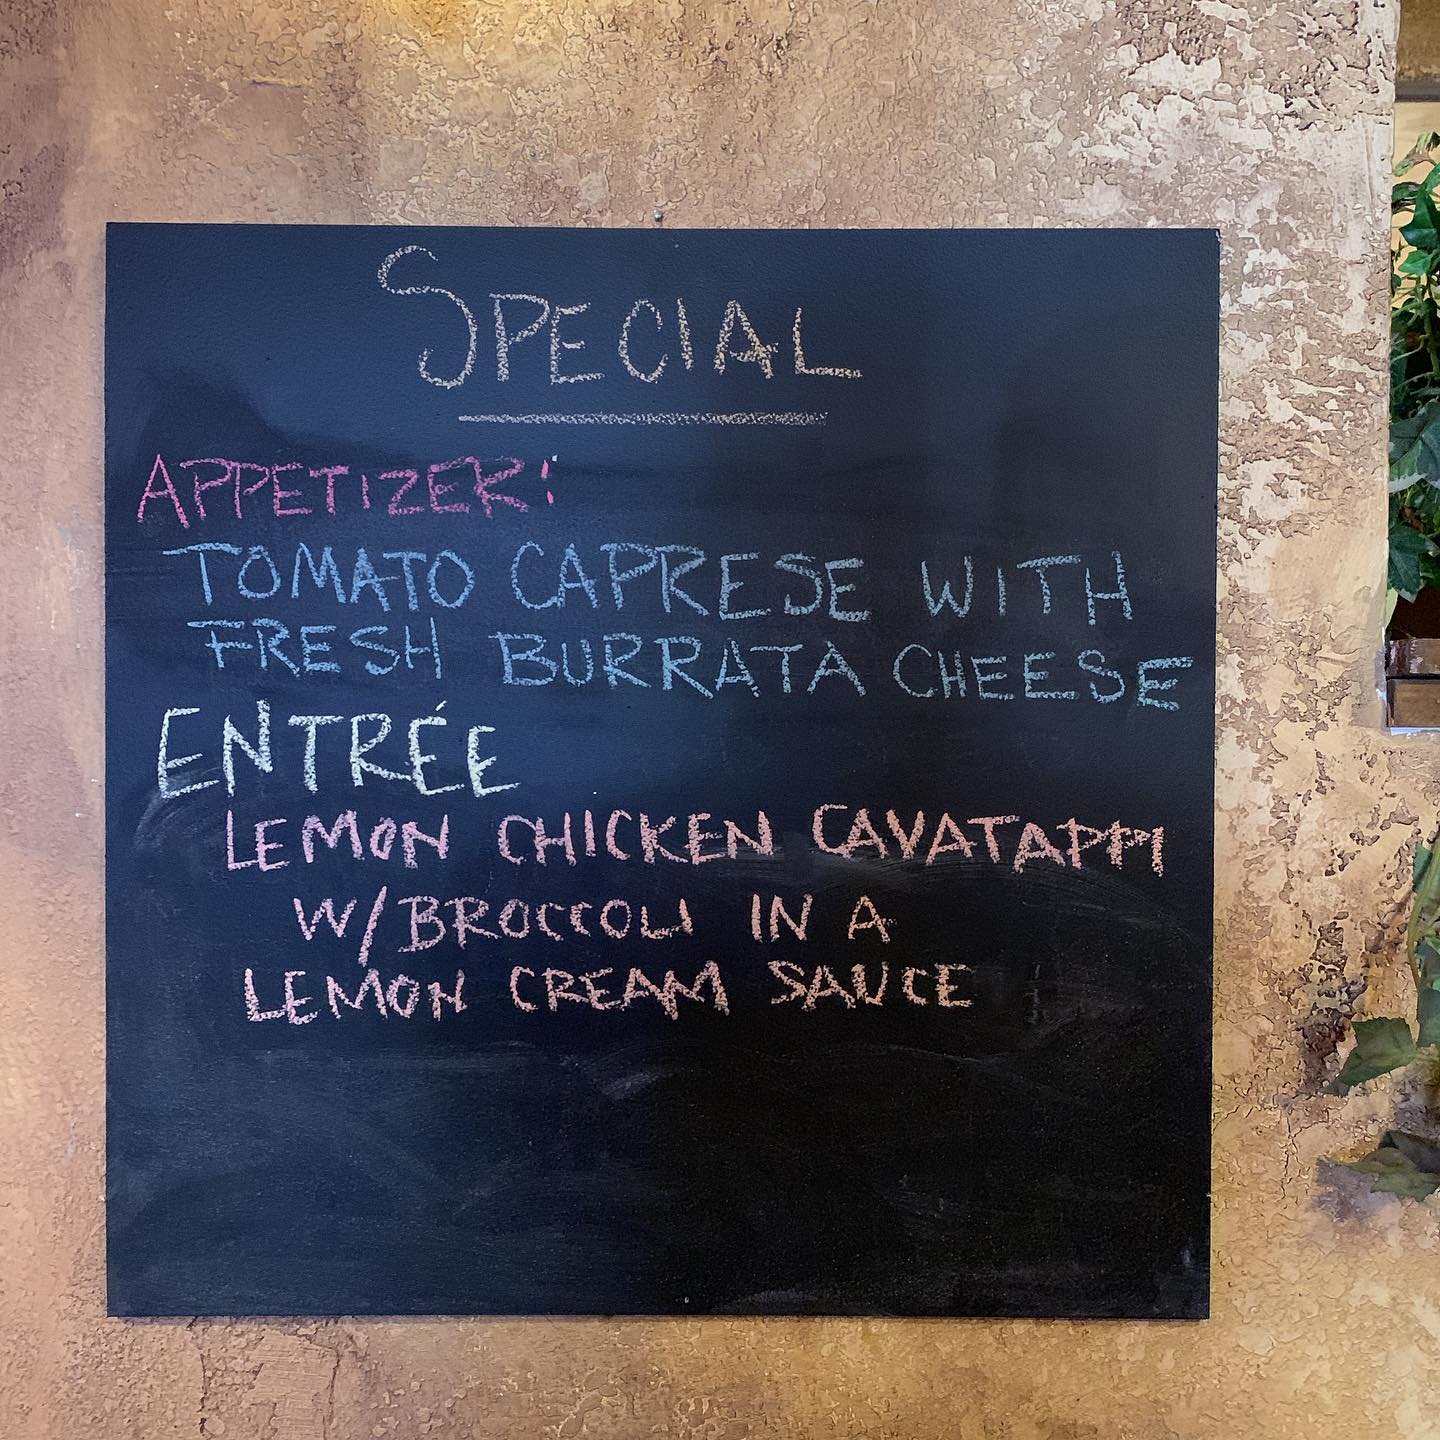 SPECIAL
APPETIZER:
TOMATO CAPRESE WITH
FRESH BURRATA CHEESE
ENTRÉE
LEMON CHICKEN CAVATAPPI
W/BROCCOLI IN A
LEMON CREAM SAUCE